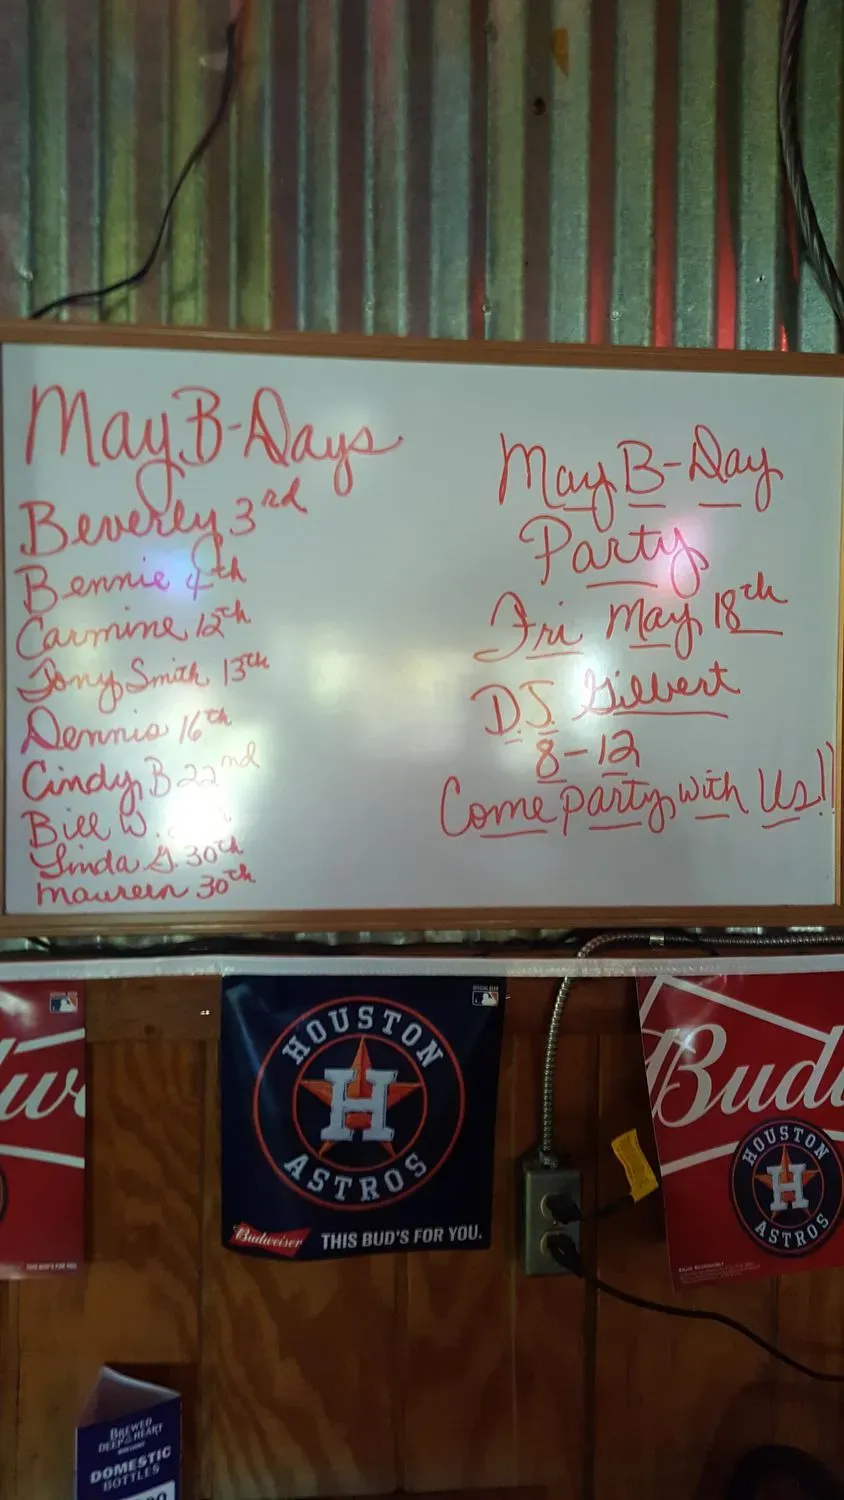 May B-Days
Beverly 3rd
Bennie 4th
Carmine 12th
Tony Smith 13th
Dennis 16th
Cindy B 22nd
Bill W.
Linda G. 30th
Maureen 30th
May B-Day
Party
Fri May 18th
D.J. Gilbert
8-12
Come party with Us!!
HOUSTON
H
ASTROS
Budweiser THIS BUD'S FOR YOU.
THIS BUD'S FOR YOU.
Budw
HOUSTON
H
ASTROS
BREWED
DEEP IN THE HEART
DOMESTIC
BOTTLES